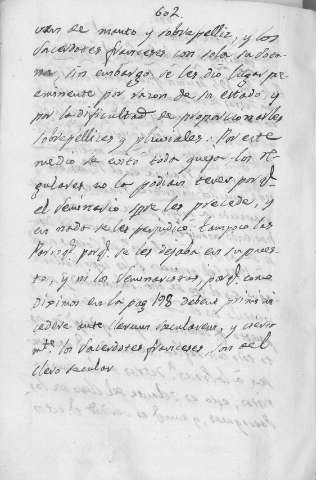 602
van de manto y sobrepelliz, y los
Sacerdotes franceses con sola su Sota-
na sin embargo se les dio lugar pre
eminente por razon de su estado, y
por la dificultad de proporcionarles
sobrepellizes y pluviales. Por este
medio se evitó toda queja. Los Re
gulares no la podian tener, porq.e
el Seminario spre les precede, y
en nada se les perjudicó. Tampoco las
Parroq.s porq.e se les dejaba en su pues
to, y ni los Seminaristas, porq.e como
diximos en la pag 198 deben
cedere ante Clerum Saecularem, y cierta
m.te los Sacerdotes franceses son del
clero secular